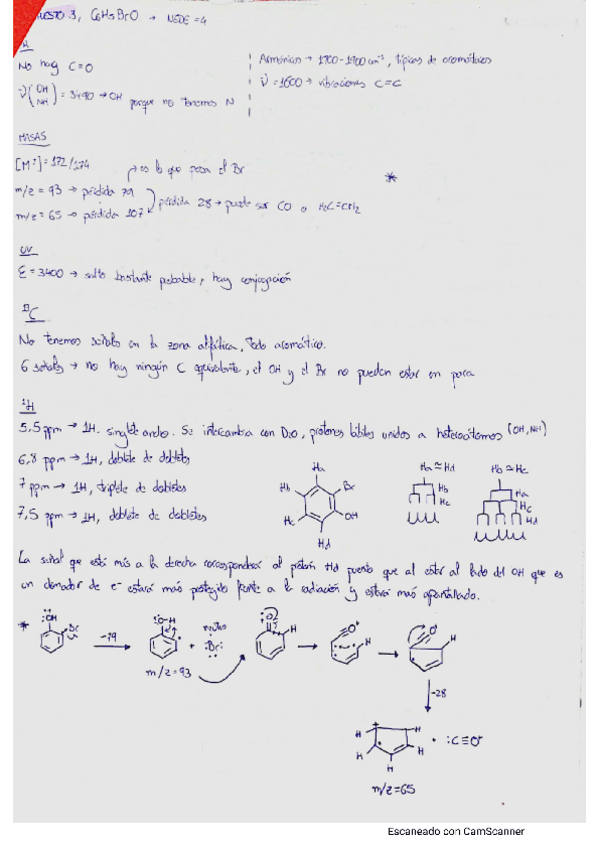 3, C6H5BrO → NEDE = 4
No hay C=O
ν(OH NH) = 3490 → OH porque no tenemos N
Armónicos → 1700-1900 cm⁻¹, típicas de aromáticos
ν = 1600 → vibraciones C=C
MASAS
[M⁺] = 172/174
→ es lo que pesa el Br
m/z = 93 → pérdida 79
m/z = 65 → pérdida 107
pérdida 28 → puede ser CO o H2C=CH2
*
UV
ε = 3400 → salto bastante probable, hay conjugación
¹³C
No tenemos señales en la zona alifática, todo aromático.
6 señales → no hay ningún C equivalente, el OH y el Br no pueden estar en para
¹H
5,5 ppm → 1H. singlete ancho. Se intercambia con D2O, protones lábiles unidos a heteroátomos (OH, NH)
6,8 ppm → 1H, doblete de dobletes
7 ppm → 1H, triplete de dobletes
7,5 ppm → 1H, doblete de dobletes
Ha
Hb
Br
Hc
OH
Hd
Ha ≅ Hd
Hb
Hc
Hb ≅ Hc
Ha
Hc
Hd
La señal que está más a la derecha corresponderá al protón Hd puesto que al estar al lado del OH que es
un donador de e⁻ estará más protegido frente a la radiación y estará más apantallado.
*
OH
Br
-79
O-H
+
:Br:
m/z = 93
O
H
O⁺
H
O⁺
H
-28
H
H
H
H
H
+ :C≡O⁺
m/z = 65
Escaneado con CamScanner